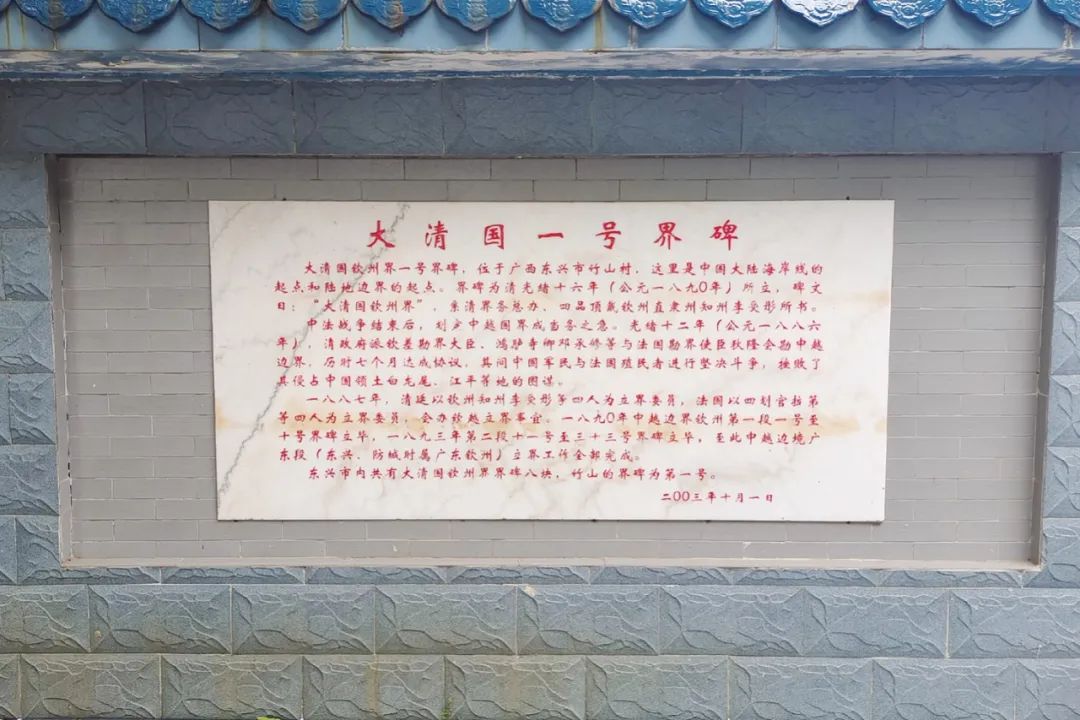 大清国一号界碑
大清国钦州界一号界碑，位于广西东兴市竹山村，这里是中国大陆海岸线的
起点和陆地边界的起点。界碑为清光绪十六年（公元一八九0年）所立，碑文
曰：“大清国钦州界”，系清界务总办、四品顶戴钦州直隶州知州李受彤所书。
中法战争结束后，划定中越国界成当务之急。光绪十二年（公元一八八六
年），清政府派钦差勘界大臣、鸿胪寺卿邓承修等与法国勘界使臣狄隆会勘中越
边界，历时七个月达成协议，其间中国军民与法国殖民者进行坚决斗争，挫败了
其侵占中国领土白龙尾、江平等地的图谋。
一八八七年，清廷以钦州知州李受彤等四人为立界委员，法国以四划官拐第
等四人为立界委员，会办钦越立界事宜。一八九0年中越边界钦州第一段一号至
十号界碑立毕，一八九三年第二段十一号至三十三号界碑立毕，至此中越边境广
东段（东兴、防城时属广东钦州）立界工作全部完成。
东兴市内共有大清国钦州界界碑八块，竹山的界碑为第一号。
二00三年十月一日